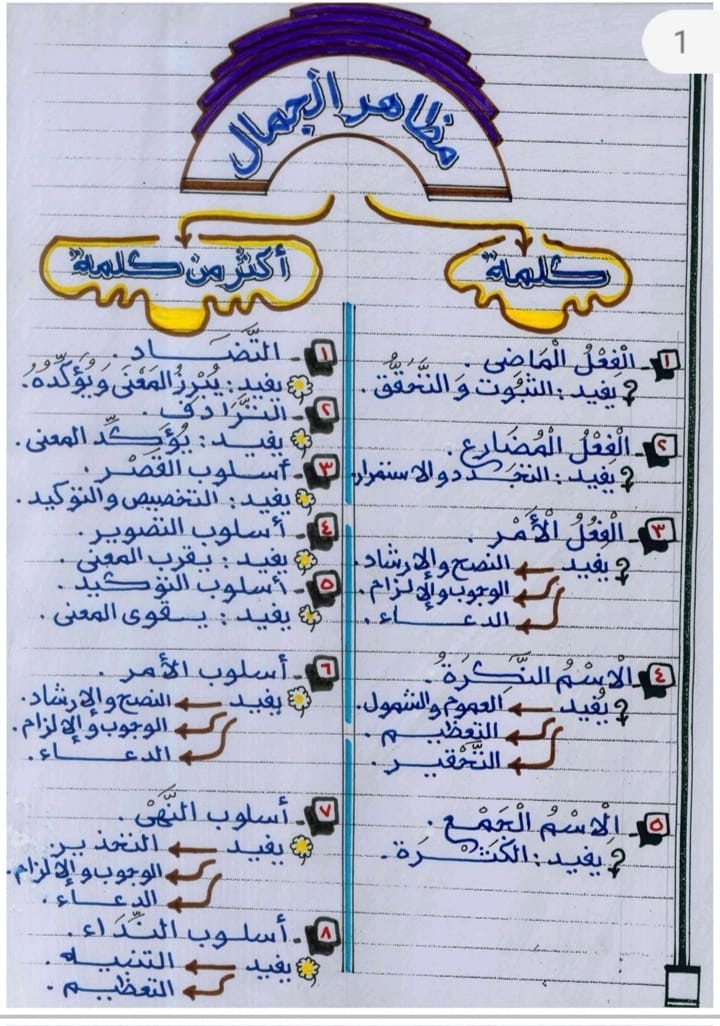 1
مظاهر الجمال
كلمة
١- الْفِعْلُ الْمَاضى .
يفيد : الثبوت و التَّحَقُّق .
٢- الْفِعْلُ الْمُضَارع .
يفيد : التجدد والاستمرار
٣- الْفِعْلُ الْأَمْر .
يفيد ← النصح والإرشاد .
← الوجوب والإلزام .
← الدعاء .
٤- الْاسْمُ النَّكِرَةُ .
يُفيد ← العموم والشمول .
← التعظيم .
← التَّحْقير .
٥- الْاسْمُ الْجَمْع .
يفيد : الكَثْرَة .
أكثر من كلمة
١- التَّضَاد .
يفيد : يُبْرِزُ المَعْنَى وَيُؤَكِّدُهُ .
٢- التَّرَادُف .
يفيد : يُؤَكِّد المعنى .
٣- أسلوب القَصْر .
يفيد : التخصيص والتوكيد .
٤- أسلوب التصوير .
يفيد : يقرب المعنى .
٥- أسلوب التوكيد .
يفيد : يقوى المعنى .
٦- أسلوب الأمر .
يفيد ← النصح والإرشاد .
← الوجوب والإلزام .
← الدعاء .
٧- أسلوب النَّهْىْ .
يفيد ← التحذير .
← الوجوب والإلزام .
← الدعاء .
٨- أسلوب النِّدَاء .
يفيد ← التنبيه .
← التعظيم .